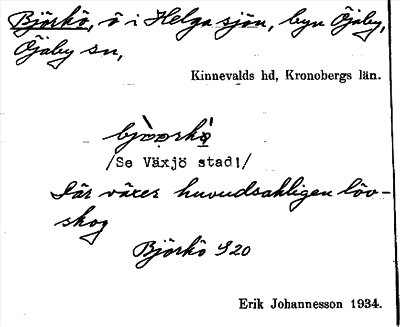 Björkö, ö i Helga sjön, byn Öjaby,
Öjaby sn,
Kinnevalds hd, Kronobergs län.
/Se Växjö stad!/
Här växer huvudsakligen löv-
skog
Björkö S20
Erik Johannesson 1934.